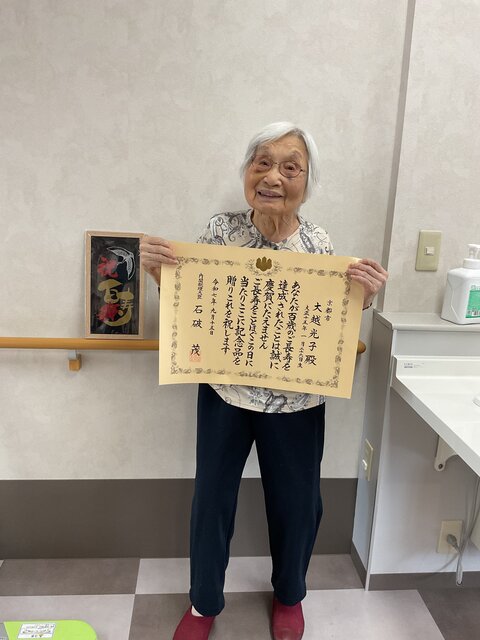 京都府
大越光子殿
あなたが百歳のご長寿を
達成されたことは誠に
慶賀にたえません
ご長寿をことほぐこの日に
当たりここに記念品を
贈りこれを祝します
令和七年九月十五日
内閣総理大臣 石破 茂
祝
百寿